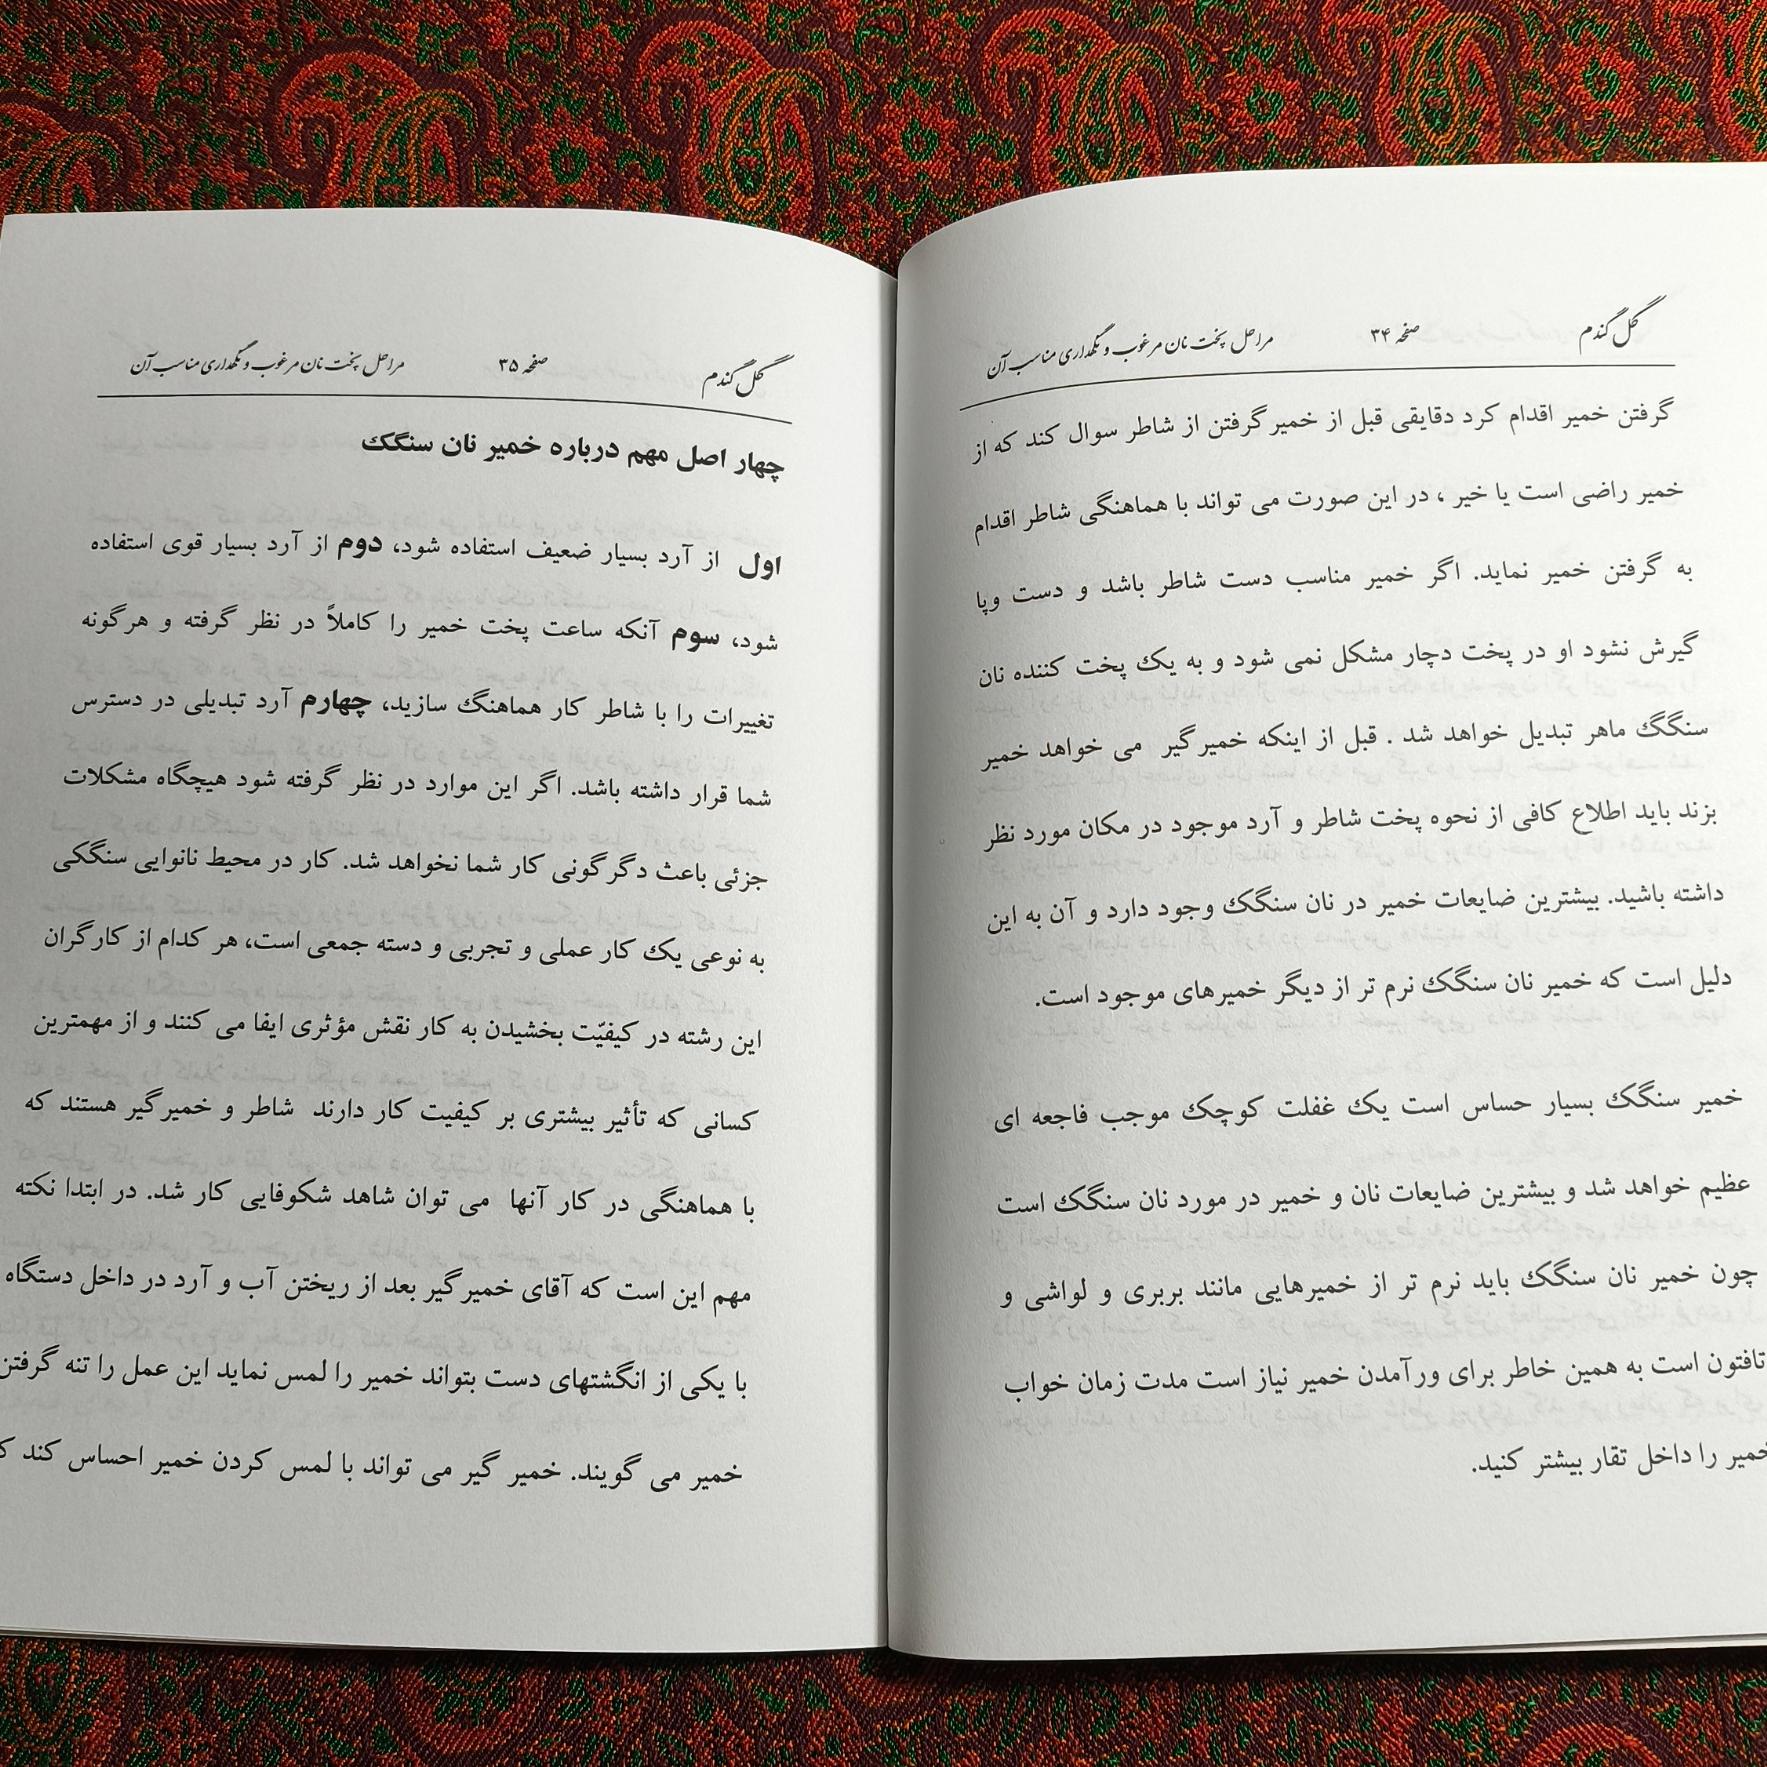 گل گندم صفحه ۳۴ مراحل پخت نان مرغوب و نگهداری مناسب آن
گرفتن خمیر اقدام کرد دقایقی قبل از خمیر گرفتن از شاطر سوال کند که از
خمیر راضی است یا خیر ، در این صورت می تواند با هماهنگی شاطر اقدام
به گرفتن خمیر نماید. اگر خمیر مناسب دست شاطر باشد و دست وپا
گیرش نشود او در پخت دچار مشکل نمی شود و به یک پخت کننده نان
سنگگ ماهر تبدیل خواهد شد . قبل از اینکه خمیرگیر می خواهد خمیر
بزند باید اطلاع کافی از نحوه پخت شاطر و آرد موجود در مکان مورد نظر
داشته باشید. بیشترین ضایعات خمیر در نان سنگک وجود دارد و آن به این
دلیل است که خمیر نان سنگک نرم تر از دیگر خمیرهای موجود است.
خمیر سنگک بسیار حساس است یک غفلت کوچک موجب فاجعه ای
عظیم خواهد شد و بیشترین ضایعات نان و خمیر در مورد نان سنگک است
چون خمیر نان سنگک باید نرم تر از خمیرهایی مانند بربری و لواشی و
تافتون است به همین خاطر برای ورآمدن خمیر نیاز است مدت زمان خواب
خمیر را داخل تقار بیشتر کنید.
گل گندم صفحه ۳۵ مراحل پخت نان مرغوب و نگهداری مناسب آن
چهار اصل مهم درباره خمیر نان سنگک
اول از آرد بسیار ضعیف استفاده شود، دوم از آرد بسیار قوی استفاده
شود، سوم آنکه ساعت پخت خمیر را کاملاً در نظر گرفته و هرگونه
تغییرات را با شاطر کار هماهنگ سازید، چهارم آرد تبدیلی در دسترس
شما قرار داشته باشد. اگر این موارد در نظر گرفته شود هیچگاه مشکلات
جزئی باعث دگرگونی کار شما نخواهد شد. کار در محیط نانوایی سنگکی
به نوعی یک کار عملی و تجربی و دسته جمعی است، هر کدام از کارگران
این رشته در کیفیّت بخشیدن به کار نقش مؤثری ایفا می کنند و از مهمترین
کسانی که تأثیر بیشتری بر کیفیت کار دارند شاطر و خمیرگیر هستند که
با هماهنگی در کار آنها می توان شاهد شکوفایی کار شد. در ابتدا نکته
مهم این است که آقای خمیرگیر بعد از ریختن آب و آرد در داخل دستگاه
با یکی از انگشتهای دست بتواند خمیر را لمس نماید این عمل را تنه گرفتن
خمیر می گویند. خمیر گیر می تواند با لمس کردن خمیر احساس کند